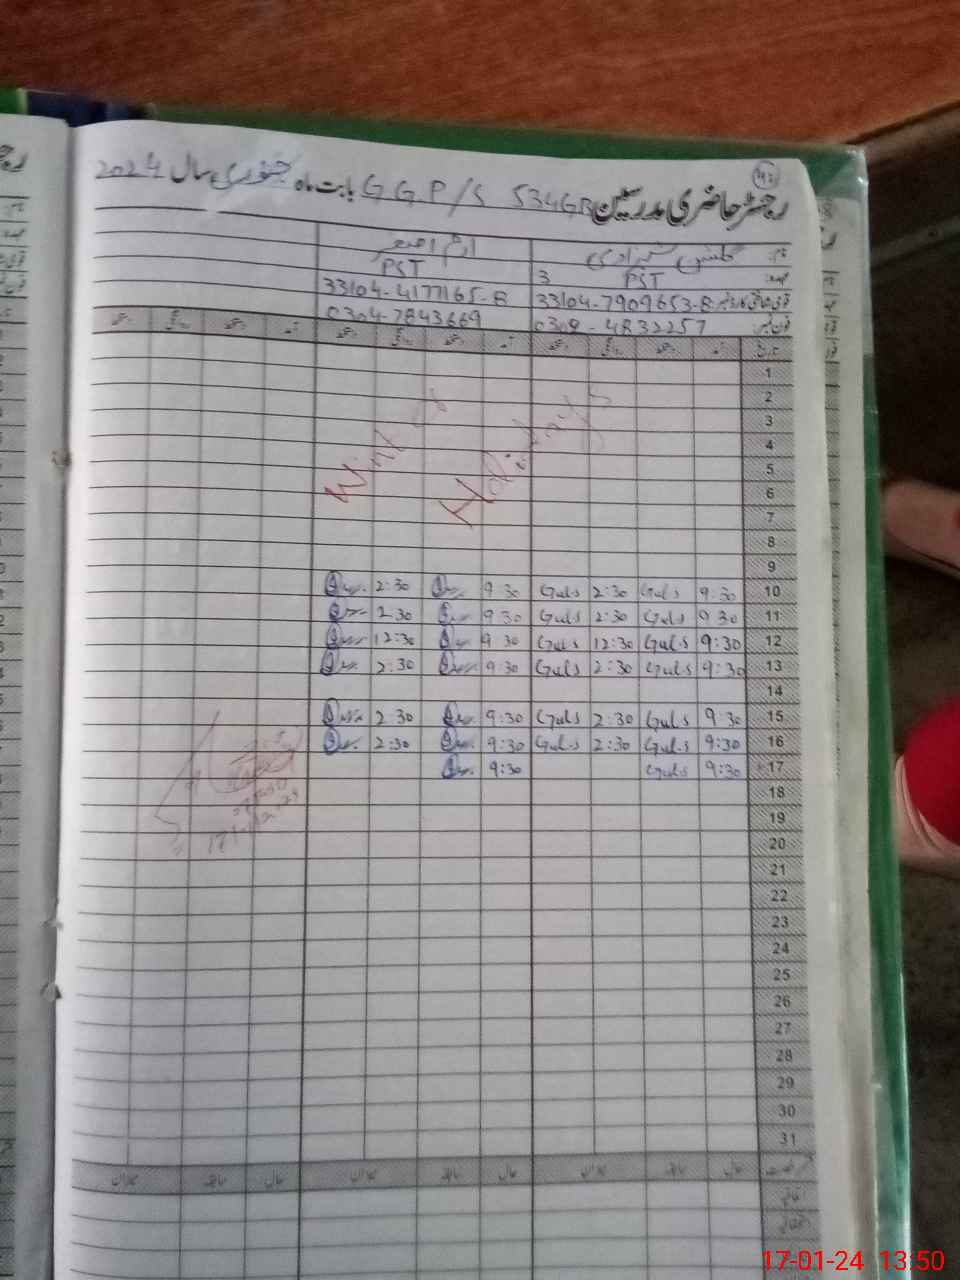 رجسٹر حاضری مدرسین G G P/S 534GB بابت ماہ جنوری سال 2024
نام: گلشن شہزادی ارم اصغر
عہدہ: PST 3 PST
قومی شناختی کارڈ نمبر 33104-7909653-8 33104-4177165-8
فون نمبر 0308-4832257 0304-7843669
تاریخ آمد دستخط روانگی دستخط آمد دستخط روانگی دستخط آمد دستخط روانگی دستخط
1
2
3
4
5
6
7
8
9
Winter
Holidays
10 9:30 Guls 2:30 Guls 9:30 2:30
11 9:30 Guls 2:30 Guls 9:30 2:30
12 9:30 Guls 12:30 Guls 9:30 12:30
13 9:30 Guls 2:30 Guls 9:30 2:30
14
15 9:30 Guls 2:30 Guls 9:30 2:30
16 9:30 Guls 2:30 Guls 9:30 2:30
17 9:30 Guls 9:30
18
19
20
21
22
23
24
25
26
27
28
29
30
31
حال سابقہ میزان حال سابقہ میزان حال سابقہ میزان
اتفاقی
17-01-24 13:50